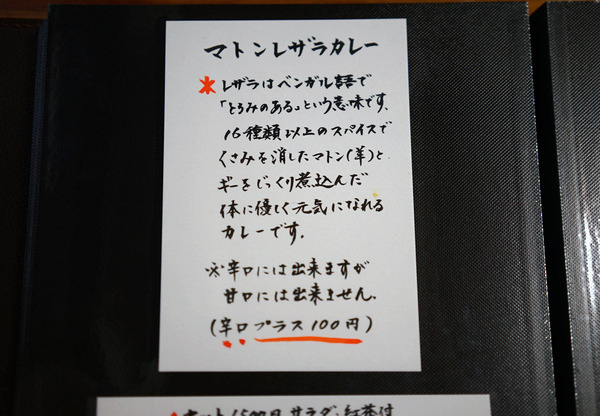 マトンレザラカレー
* レザラはベンガル語で
「とろみのある」という意味です。
16種類以上のスパイスで
くさみを消したマトン(羊)と
ギーをじっくり煮込んだ
体に優しく元気になれる
カレーです。
※辛口には出来ますが
甘口には出来ません。
(辛口プラス100円)
セット1500円 サラダ、紅茶付